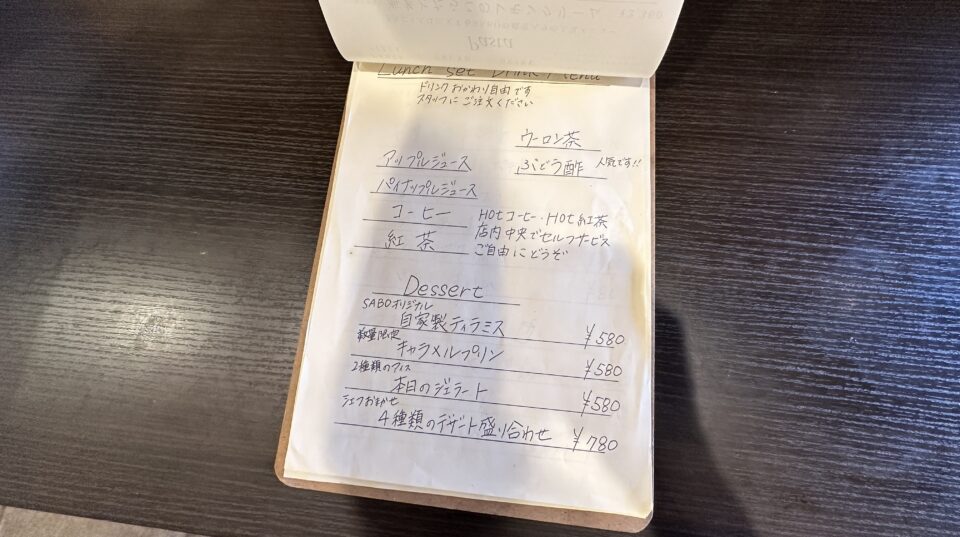 Lunch set Drink Menu
ドリンクおかわり自由です
スタッフにご注文ください
ウーロン茶
アップルジュース
ぶどう酢 人気です!!
パイナップルジュース
コーヒー
紅茶
Hotコーヒー・Hot紅茶
店内中央でセルフサービス
ご自由にどうぞ
Dessert
SABOオリジナル
自家製ティラミス ¥580
数量限定
キャラメルプリン ¥580
2種類のアイス
本日のジェラート ¥580
シェフおまかせ
4種類のデザート盛り合わせ ¥780